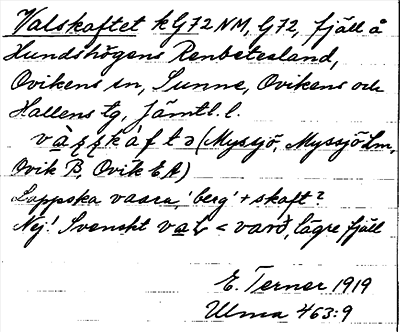 Valskaftet k G72 NM, G72, fjäll å
Hundshögens Renbetesland,
Ovikens sn, Sunne, Ovikens och
Hallens tg, Jämtl. l.
(Myssjö, Myssjö Lm,
Ovik B, Ovik EA)
Lappska vaara, 'berg' + skaft?
Nej! Svenskt val < vard, lägre fjäll
E. Terner 1919
Ulma 463:9